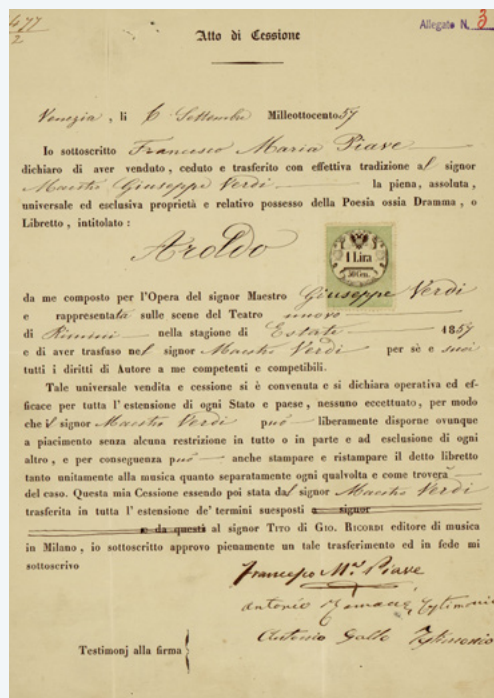 477
2
Allegato N. 3
Atto di Cessione
Venezia, li 6 Settembre Milleottocento57
Io sottoscritto Francesco Maria Piave
dichiaro di aver venduto, ceduto e trasferito con effettiva tradizione al signor
Maestro Giuseppe Verdi la piena, assoluta,
universale ed esclusiva proprietà e relativo possesso della Poesia ossia Dramma, o
Libretto, intitolato:
Aroldo
1 Lira
50 Cen.
da me composto per l'Opera del signor Maestro Giuseppe Verdi
e rappresentata sulle scene del Teatro nuovo
di Rimini nella stagione di Estate 1857
e di aver trasfuso nel signor Maestro Verdi per sè e suoi
tutti i diritti di Autore a me competenti e competibili.
Tale universale vendita e cessione si è convenuta e si dichiara operativa ed ef-
ficace per tutta l'estensione di ogni Stato e paese, nessuno eccettuato, per modo
che il signor Maestro Verdi può liberamente disporne ovunque
a piacimento senza alcuna restrizione in tutto o in parte e ad esclusione di ogni
altro, e per conseguenza può anche stampare e ristampare il detto libretto
tanto unitamente alla musica quanto separatamente ogni qualvolta e come troverà
del caso. Questa mia Cessione essendo poi stata dal signor Maestro Verdi
trasferita in tutta l'estensione de' termini suesposti a signor
e da questi al signor Tito di Gio. Ricordi editore di musica
in Milano, io sottoscritto approvo pienamente un tale trasferimento ed in fede mi
sottoscrivo
Francesco M.a Piave
Antonio Testimonio
Antonio Gallo Testimonio
Testimonj alla firma